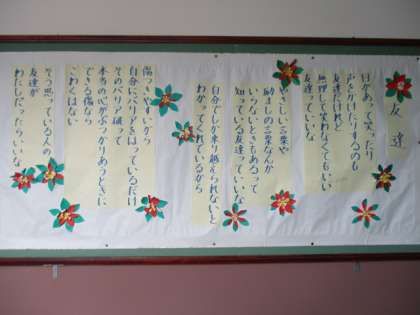 友達
目があって笑ったり
声をかけたりするのも
友達だけれど
無理して笑わなくてもいい
友達っていいな
やさしい言葉や
励ましの言葉なんか
いらないときもあるって
知っている友達っていいな
自分でしか乗り越えられないと
わかってくれているから
傷つきやすいから
自分にバリアをはっているだけ
そのバリア破って
本当の心がぶつかりあうときに
できる傷なら
こわくはない
そう思っている人の
友達が
わたしだったらいいな